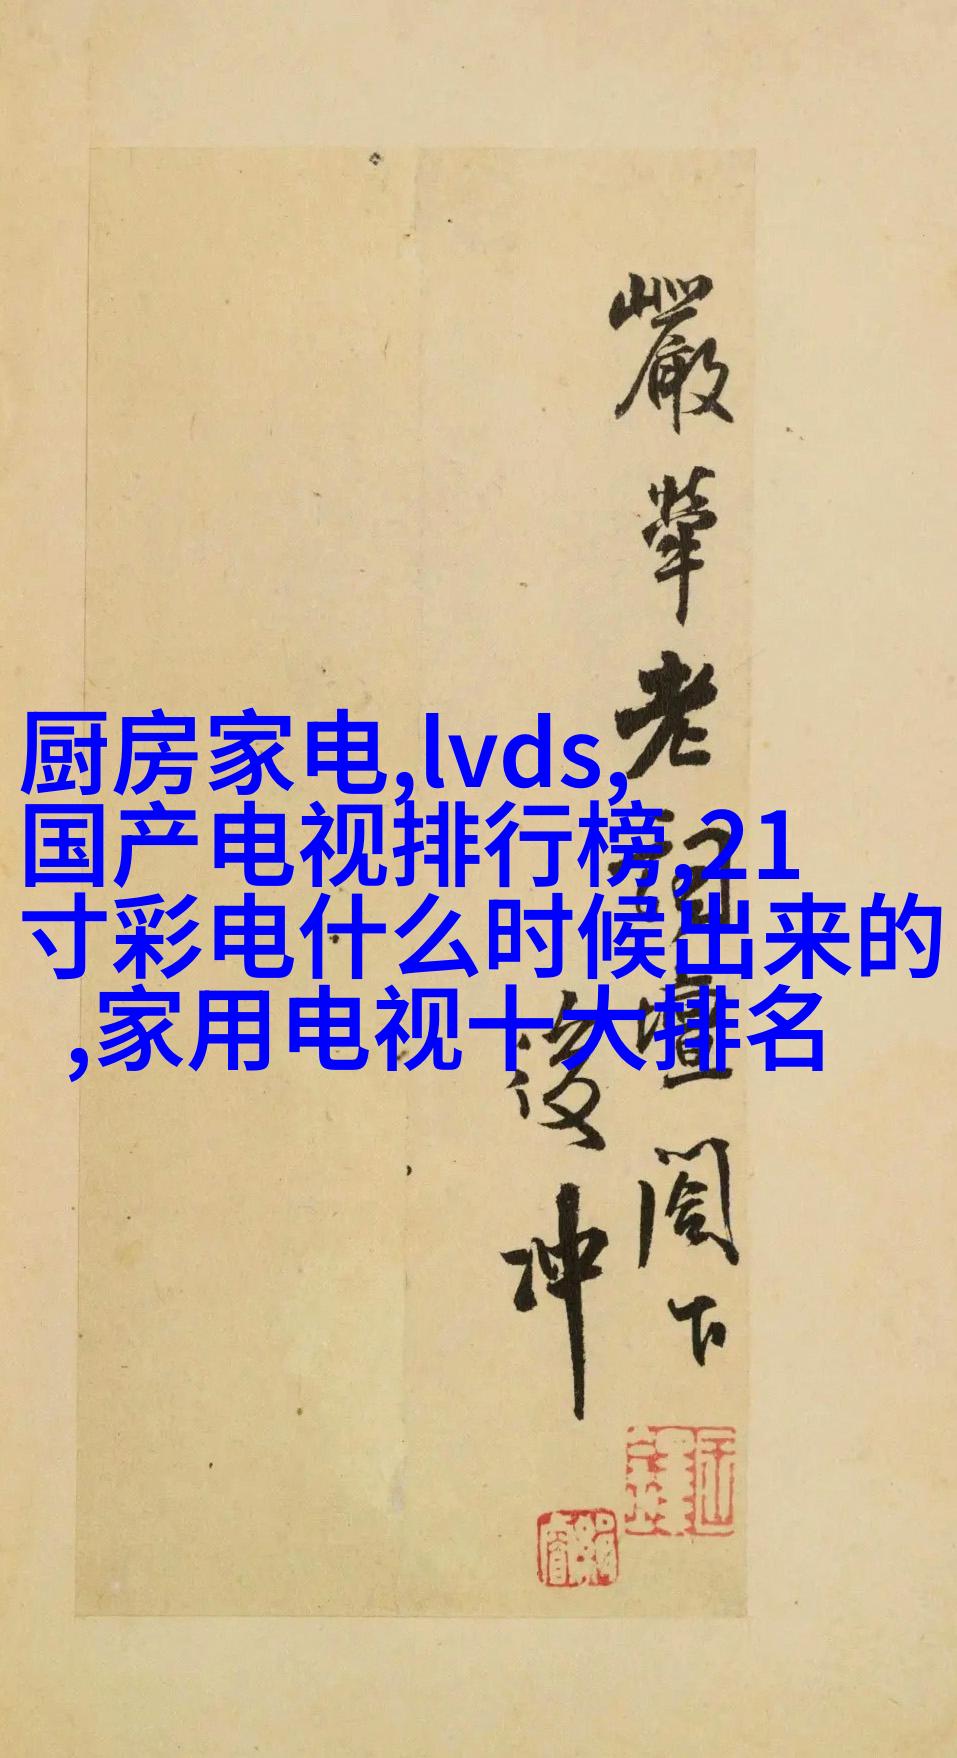 厨房家电,lvds,
国产电视排行榜,21
寸彩电什么时候出来的
,家用电视十大排名
嚴犖老詞壇閣下
後冲